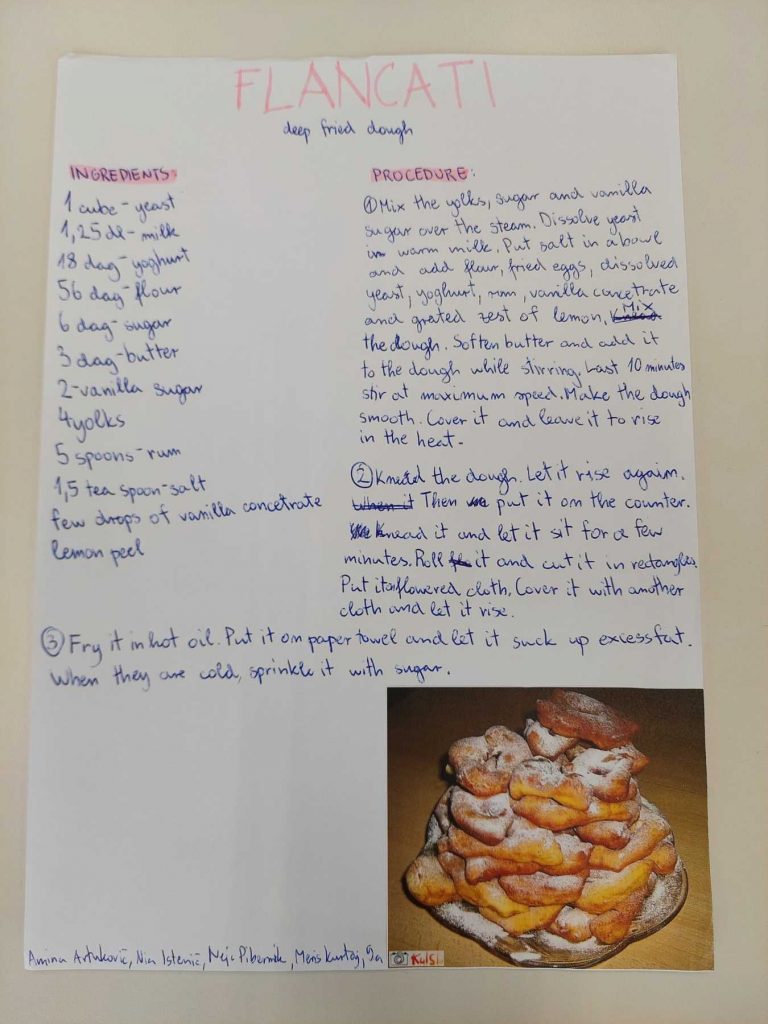 FLANCATI
deep fried dough
INGREDIENTS:
1 cube - yeast
1,25 dl - milk
18 dag - yoghurt
56 dag - flour
6 dag - sugar
3 dag - butter
2 - vanilla sugar
4 yolks
5 spoons - rum
1,5 tea spoon - salt
few drops of vanilla concetrate
lemon peel
PROCEDURE:
① Mix the yolks, sugar and vanilla
sugar over the steam. Dissolve yeast
in warm milk. Put salt in a bowl
and add flour, fried eggs, dissolved
yeast, yoghurt, rum, vanilla concetrate
and grated zest of lemon. Mix
the dough. Soften butter and add it
to the dough while stirring. Last 10 minutes
stir at maximum speed. Make the dough
smooth. Cover it and leave it to rise
in the heat.
② Knead the dough. Let it rise again.
When it Then put it on the counter.
Knead it and let it sit for a few
minutes. Roll it and cut it in rectangles.
Put it on flowered cloth. Cover it with another
cloth and let it rise.
③ Fry it in hot oil. Put it on paper towel and let it suck up excess fat.
When they are cold, sprinkle it with sugar.
Amina Artuković, Nia Istenič, Neja Pibernik, Meris Kurtaj, 9a
Kulsi